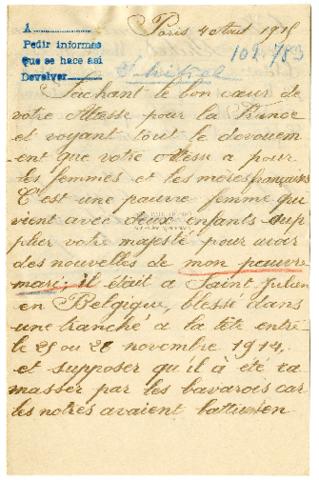 Paris 4 Aout 1915
A
Pedir informes
que se hace así
Devolver
109.783
Sachant le bon cœur de
votre Altesse pour la France
et voyant tout le devouem
ent que votre Altesse a pour
les femmes et les mères françaises
C'est une pauvre femme qui
vient avec deux enfants sup
plier votre majesté pour avoir
des nouvelles de mon pauvre
mari; il était a Saint Julien
en Belgique, blessé dans
une tranché a la tête entre
le 25 ou 28 novembre 1914.
et supposer qu'il à été ra
masser par les bavarois car
les notres avaient battu en